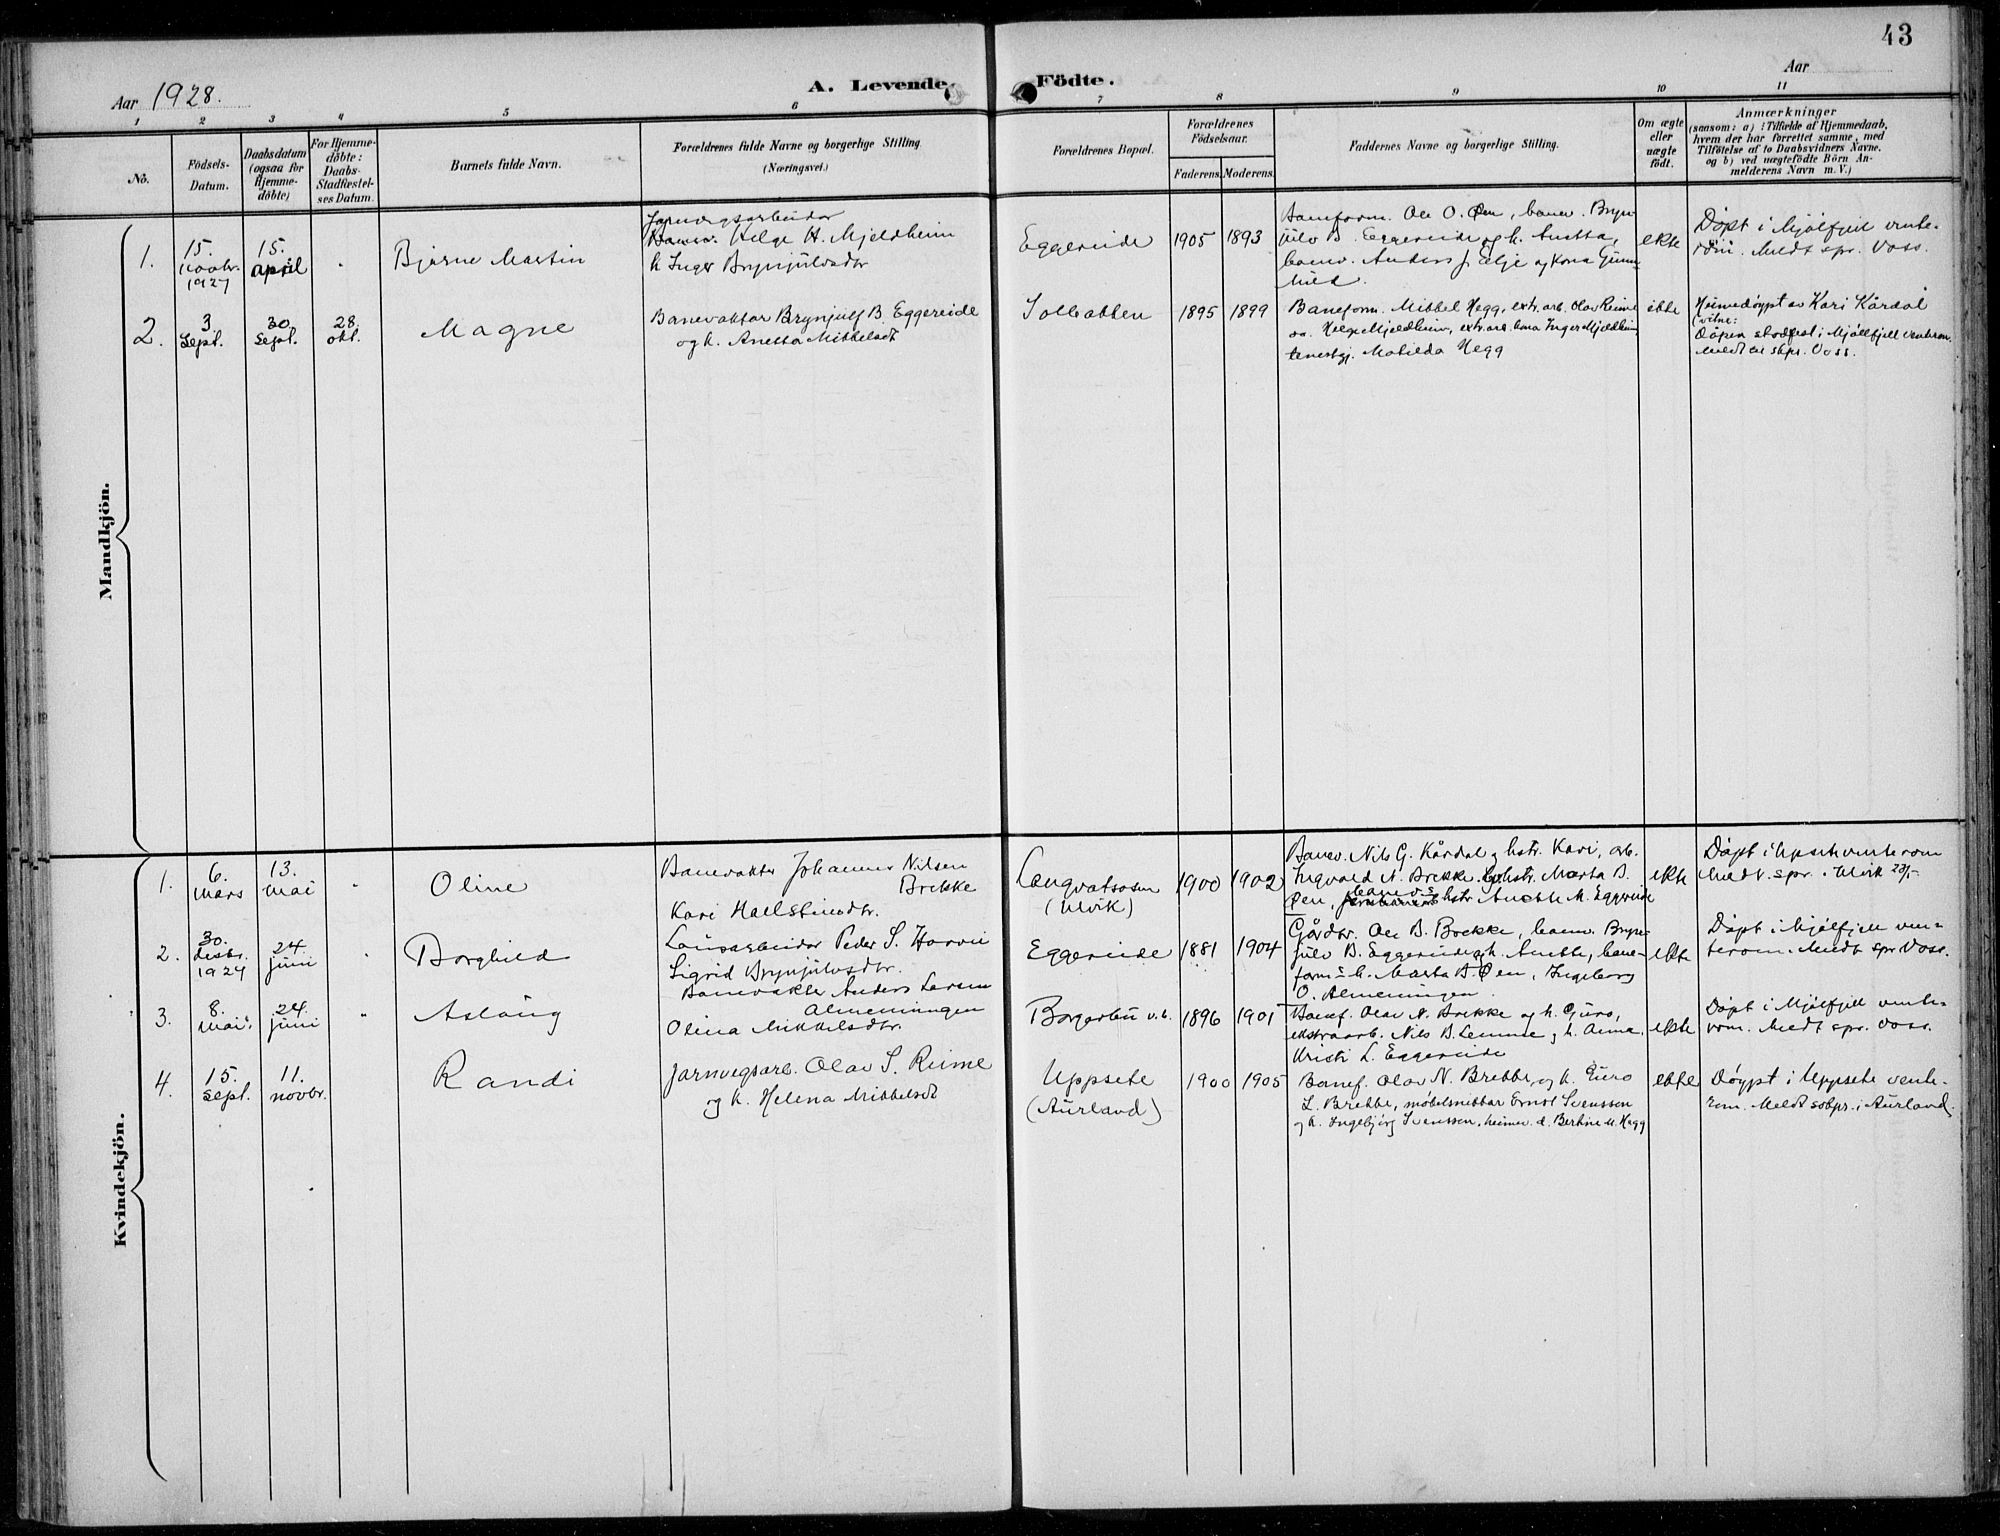 43
A. Levende Födte.
Aar 1928.
Aar
1 2 3 4 5 6 7 8 9 10 11
No.
Födsels-
Datum.
Daabsdatum
(ogsaa for
Hjemme-
döbte)
For Hjemme-
döbte:
Daabs-
Stadfæstel-
ses Datum.
Barnets fulde Navn.
Forældrenes fulde Navne og borgerlige Stilling
(Næringsvei.)
Forældrenes Bopæl.
Forældrenes
Födselsaar.
Faderens. Moderens.
Faddernes Navne og borgerlige Stilling.
Om ægte
eller
uægte
födt.
Anmærkninger
(saasom: a) i Tilfælde af Hjemmedaab,
hvem der har forrettet samme, med
Tilföielse af to Daabsvidners Navne,
og b) ved uægtefödte Börn An-
melderens Navn m. V.)
Mandkjön.
1.
15.
novbr.
1927
15.
april
Bjarne Martin
Jarnvegsarbeidar
Helge H. Mjeldheim
h. Inger Brynjulvsdtr
Eggereide
1905 1893
Baneform. Ole O. Øen, banev. Bryn-
julv B. Eggereide og h. Anetta,
banev. Anders J. og kona
ekte
Døpt i Mjølfjell vente-
rom. Meldt spr. Voss.
2.
3
Sept.
30.
Sept.
28.
okt.
Magne
Banevaktar Brynjulf B. Eggereide
og h. Anetta Mikkelsdt
1895 1899
Baneform. Mikkel Hegg, extr. arb. Olav Reime
Helge Mjeldheim, extr. arb. kona Inger Mjeldheim
tenestgj. Matilda Hegg
ekte
Heimedøypt av Kari Kårdal
(vitne:
Dåpen stadfest i Mjølfjell venterom.
Meldt til skpr. Voss.
Kvindekjön.
1.
6.
mars
13.
mai
Oline
Banevakter Johannes Nilsen
Brekke
Kari Hallsteinsdtr.
Langvatsosen
(Ulvik)
1900 1902
Banev. Nils G. Kårdal og hstr. Kari, arb.
Ingvald N. Brekke, hstr. Marta B.
Øen, banev.s hstr Anette M. Eggereide
ekte
Døpt i Upsete venterom
Meldt spr. i Ulvik 23/5
2.
30.
desbr.
1927
24
juni
Borghild
Lausarbeidar Peder S. Horvei
Sigrid Brynjulvsdtr.
Eggereide
1881 1904
Gårdbr. Ole B. Brekke, banev. Bryn-
julv B. Eggereide og h. Anette, bane-
form.s h. Marta B. Øen, Ingeborg
O. Almeningen.
ekte
Døpt i Mjølfjell ven-
terom. Meldt spr. Voss.
3.
8.
mai
24
juni
Aslaug
Banevakter Anders Larsen
Almenningen
Olina Mikkelsdtr.
1896 1901
Banef. Olav N. Brekke og h. Guro,
ekstraarb. Nils B. Lemme og h. Anna.
Kristi L. Eggereide
ekte
Døpt i Mjølfjell vente-
rom. Meldt spr. Voss.
4.
15.
Sept.
11.
novbr.
Randi
Jarnvegsarb. Olav S. Reime
og h. Helena Mikkelsdt
Uppsete
(Aurland)
1900 1905
Banef. Olav N. Brekke, og h. Guro
L. Brekke, møbelsnikkar Ernst Svenssen
og h. Ingebjørg Svenssen, heimev. d. Bertine M. Hegg
ekte
Døypt i Uppsete vente-
rom. Meldt sokpr. i Aurland.